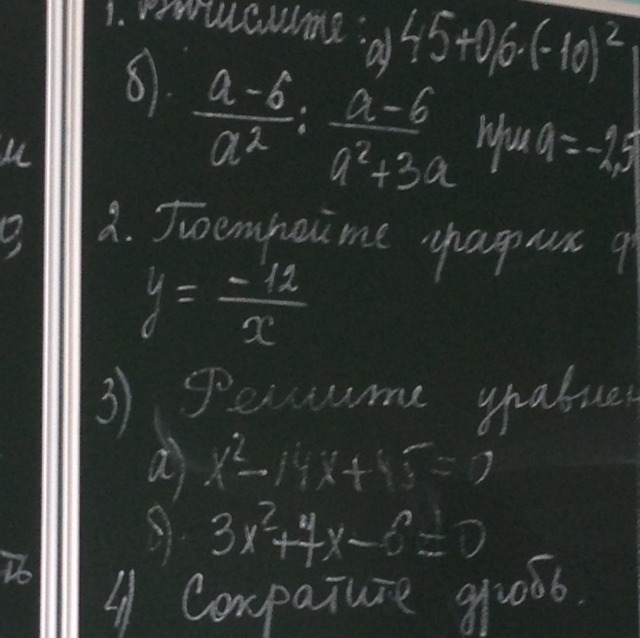 1. Вычислите: а) 45+0,6·(-10)²
б). a-6/a² : a-6/a²+3a при a=-2,5
2. Постройте график
y = -12/x
3) Решите
а) x²-14x+45=0
б). 3x²+7x-6=0
4) Сократите дробь.